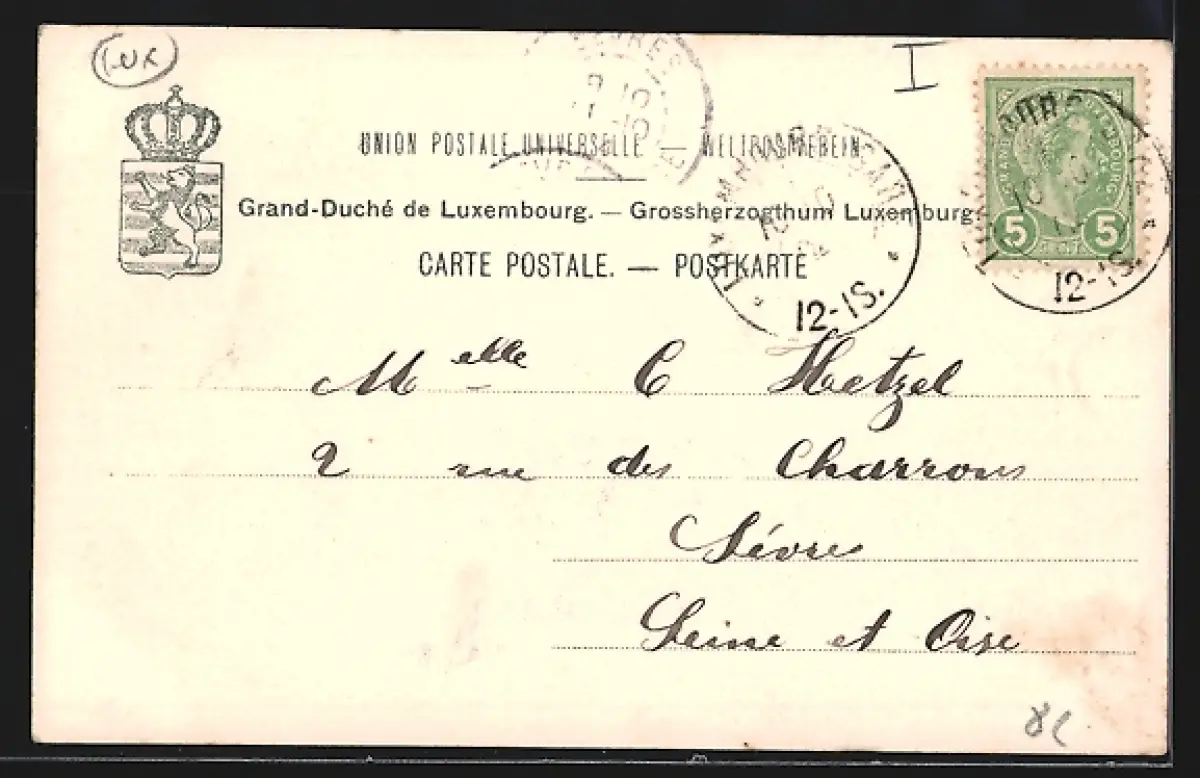 LUX
I
UNION POSTALE UNIVERSELLE — WELTPOSTVEREIN
Grand-Duché de Luxembourg. — Grossherzogthum Luxemburg.
CARTE POSTALE. — POSTKARTE
5 5
GARE
12-1S.
12-1S.
Melle C Hetzel
2 rue des Charrons
Sèvres
Seine et Oise